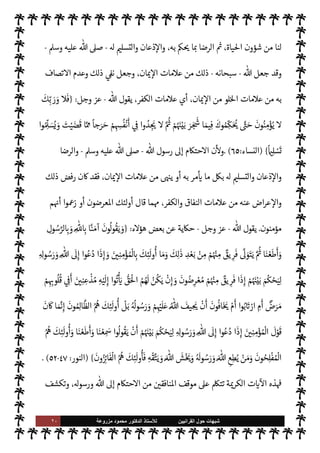 لنا من شؤون الحياة، ثم الرضا بما يحكم به، والإذعان والتسليم له - صلى الله عليه وسلم -
وقد جعل الله - سبحانه - ذلك من علامات الإيمان، وجعل نفي ذلك وعدم الاتصاف
به من علامات الخلو من الإيمان، أي علامات الكفر، يقول الله - عز وجل: {فَلَا وَرَبِّكَ
لَا يُؤْمِنُونَ حَتَّىٰ يُحَكِّمُوكَ فِيمَا شَجَرَ بَيْنَهُمْ ثُمَّ لَا يَجِدُوا فِي أَنفُسِهِمْ حَرَجًا مِّمَّا قَضَيْتَ وَيُسَلِّمُوا
تَسْلِيمًا} (النساء:٦٥) .ولأن الاحتكام إلى رسول الله - صلى الله عليه وسلم - والرضا
والإذعان والتسليم له بكل ما يأمر به أو ينهى من علامات الإيمان، فقد كان رفض ذلك
والإعراض عنه من علامات النفاق والكفر، مهما قال أولئك المعرضون أو زعموا أنهم
مؤمنون. يقول الله - عز وجل - حكاية عن بعض هؤلاء: {وَيَقُولُونَ آمَنَّا بِاللَّهِ وَبِالرَّسُولِ
وَأَطَعْنَا ثُمَّ يَتَوَلَّىٰ فَرِيقٌ مِّنْهُم مِّن بَعْدِ ذَٰلِكَ وَمَا أُولَٰئِكَ بِالْمُؤْمِنِينَ وَإِذَا دُعُوا إِلَى اللَّهِ وَرَسُولِهِ
لِيَحْكُمَ بَيْنَهُمْ إِذَا فَرِيقٌ مِّنْهُم مُّعْرِضُونَ وَإِن يَكُن لَّهُمُ الْحَقُّ يَأْتُوا إِلَيْهِ مُذْعِنِينَ أَفِي قُلُوبِهِم
مَّرَضٌ أَمِ ارْتَابُوا أَمْ يَخَافُونَ أَن يَحِيفَ اللَّهُ عَلَيْهِمْ وَرَسُولُهُ بَلْ أُولَٰئِكَ هُمُ الظَّالِمُونَ إِنَّمَا كَانَ
قَوْلَ الْمُؤْمِنِينَ إِذَا دُعُوا إِلَى اللَّهِ وَرَسُولِهِ لِيَحْكُمَ بَيْنَهُمْ أَن يَقُولُوا سَمِعْنَا وَأَطَعْنَا وَأُولَٰئِكَ هُمُ
الْمُفْلِحُونَ وَمَن يُطِعِ اللَّهَ وَرَسُولَهُ وَيَخْشَ اللَّهَ وَيَتَّقْهِ فَأُولَٰئِكَ هُمُ الْفَائِزُونَ} (النور: ٤٧-٥٢) .
فهذه الآيات الكريمة تتكلم على موقف المنافقين من الاحتكام إلى الله ورسوله، وتكشف
شبهات حول القرآنيين للأستاذ الدكتور محمود مزروعة ٢٠